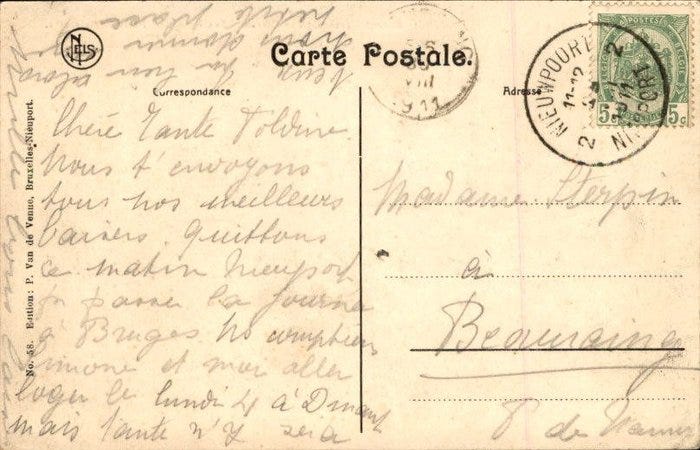 NELS
Carte Postale.
Correspondance
Adresse
VIII
1911
NIEUWPOORT 2
11-12
1911
2 NIEUPORT
POSTES
5 5c
Chère Tante Toldine
Nous t'envoyons
tous nos meilleurs
baisers. Quittons
ce matin Nieuport
pr passer la journée
à Bruges Ns comptions
Simone et moi aller
loger le lundi 4 à Dinant
mais tante n'y sera
Madame Sterpin
à
Beauraing
P de Namur
No. 58. Edition: P. Van de Venne, Bruxelles-Nieuport.